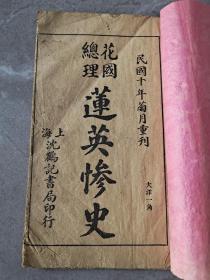 民國十年菊月重刊
大洋一角
花國
總理
蓮英慘史
上海沈鶴記書局印行